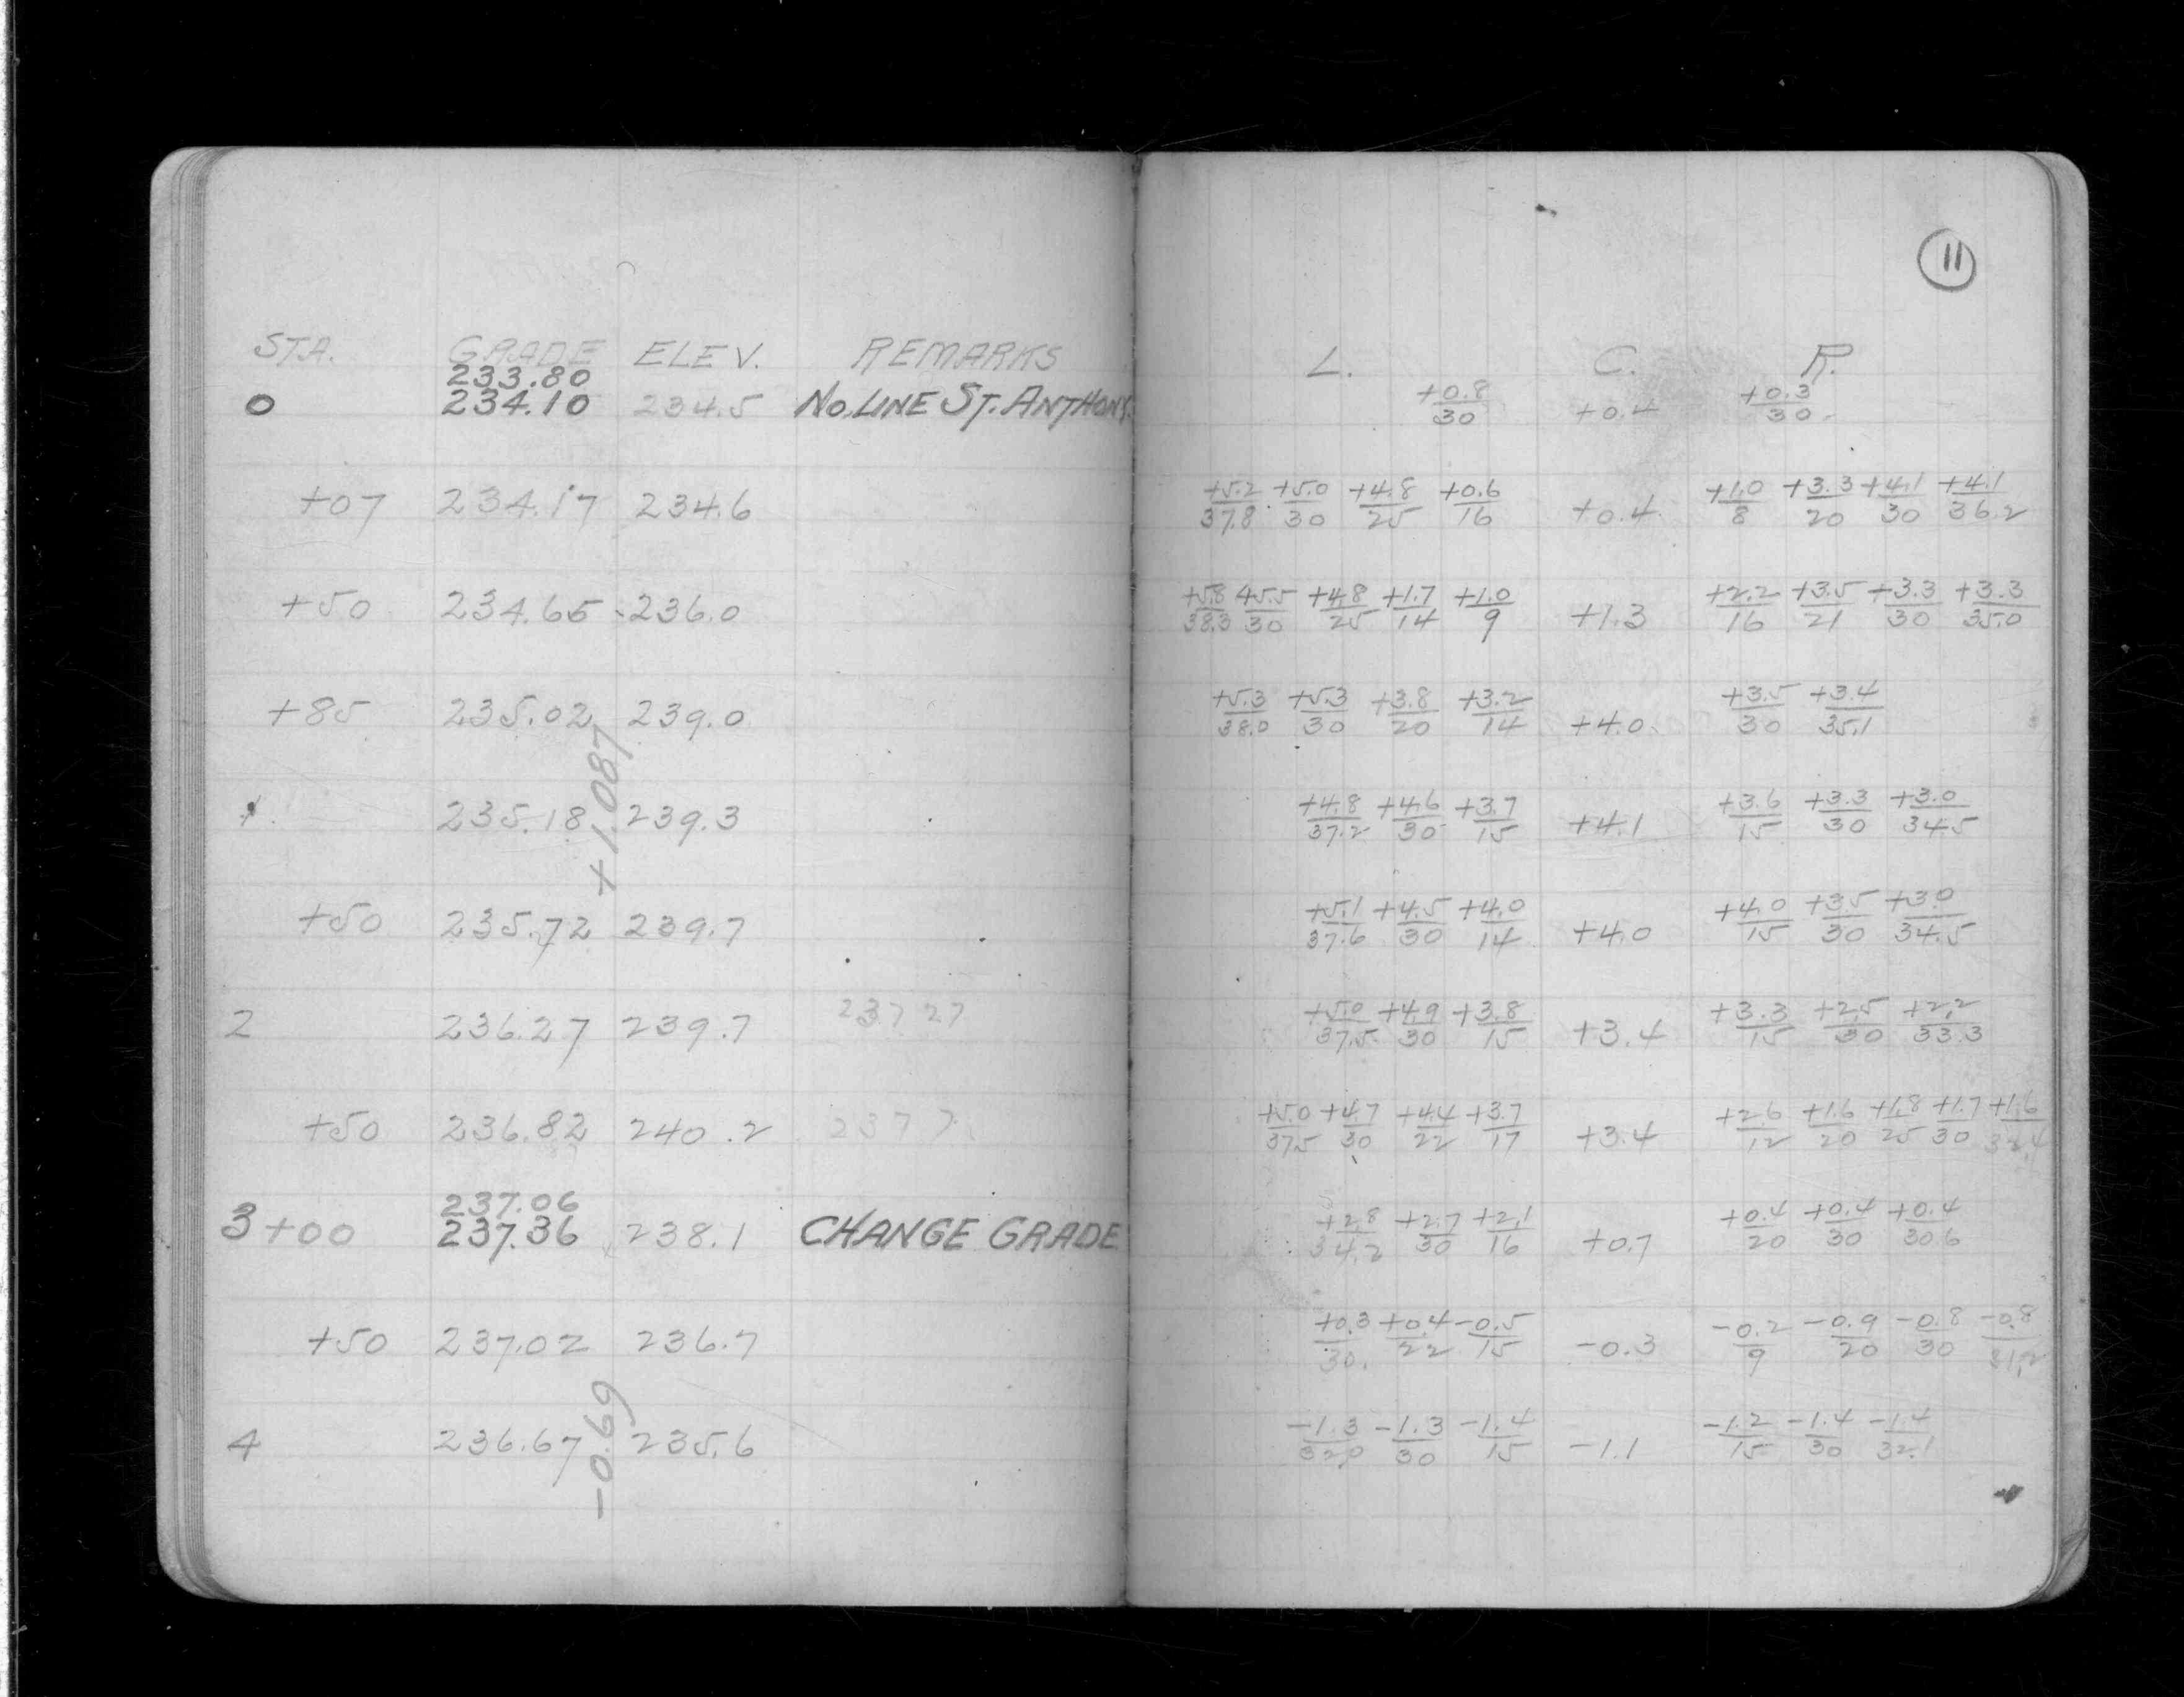 11
STA. GRADE ELEV. REMARKS L. C. R.
233.80
0 234.10 234.5 No. LINE ST. ANTHONY. +0.8/30 +0.4 +0.3/30
+07 234.17 234.6 +5.2/37.8 +5.0/30 +4.8/25 +0.6/16 +0.4 +1.0/8 +3.3/20 +4.1/30 +4.1/36.2
+50 234.65 236.0 +5.8/38.3 +5.5/30 +4.8/25 +1.7/14 +1.0/9 +1.3 +2.2/16 +3.5/21 +3.3/30 +3.3/35.0
+85 235.02 239.0 +5.3/38.0 +5.3/30 +3.8/20 +3.2/14 +4.0 +3.5/30 +3.4/35.1
+1.087
1 235.18 239.3 +4.8/37.2 +4.6/30 +3.7/15 +4.1 +3.6/15 +3.3/30 +3.0/34.5
+50 235.72 239.7 +5.1/37.6 +4.5/30 +4.0/14 +4.0 +4.0/15 +3.5/30 +3.0/34.5
2 236.27 239.7 237 27 +5.0/37.5 +4.9/30 +3.8/15 +3.4 +3.3/15 +2.5/30 +2.2/33.3
+50 236.82 240.2 237 7 +5.0/37.5 +4.7/30 +4.4/22 +3.7/17 +3.4 +2.6/12 +1.6/20 +1.8/25 +1.7/30 +1.6/32.4
237.06
3+00 237.36 238.1 CHANGE GRADE +2.8/34.2 +2.7/30 +2.1/16 +0.7 +0.4/20 +0.4/30 +0.4/30.6
+50 237.02 236.7 +0.3/30. +0.4/22 -0.5/15 -0.3 -0.2/9 -0.9/20 -0.8/30 -0.8/31.2
-0.69
4 236.67 235.6 -1.3/32.0 -1.3/30 -1.4/15 -1.1 -1.2/15 -1.4/30 -1.4/32.1